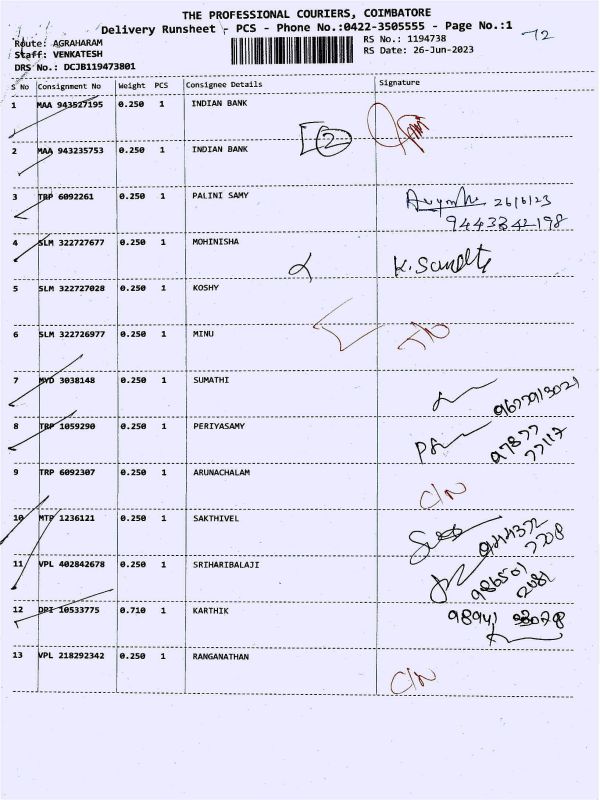 THE PROFESSIONAL COURIERS, COIMBATORE
Delivery Runsheet - PCS - Phone No.:0422-3505555 - Page No.:1
Route: AGRAHARAM RS No.: 1194738 72
Staff: VENKATESH RS Date: 26-Jun-2023
DRS No.: DCJB119473801
S No Consignment No Weight PCS Consignee Details Signature
1 MAA 943527195 0.250 1 INDIAN BANK
2
2 MAA 943235753 0.250 1 INDIAN BANK
3 TRP 6092261 0.250 1 PALINI SAMY 26/6/23
9443342198
4 SLM 322727677 0.250 1 MOHINISHA
5 SLM 322727028 0.250 1 KOSHY
6 SLM 322726977 0.250 1 MINU
7 MYD 3038148 0.250 1 SUMATHI
8 TRP 1059290 0.250 1 PERIYASAMY 97877
77117
9 TRP 6092307 0.250 1 ARUNACHALAM
C/N
10 MTP 1236121 0.250 1 SAKTHIVEL
11 VPL 402842678 0.250 1 SRIHARIBALAJI
12 DPI 10533775 0.710 1 KARTHIK 98941
13 VPL 218292342 0.250 1 RANGANATHAN
C/N